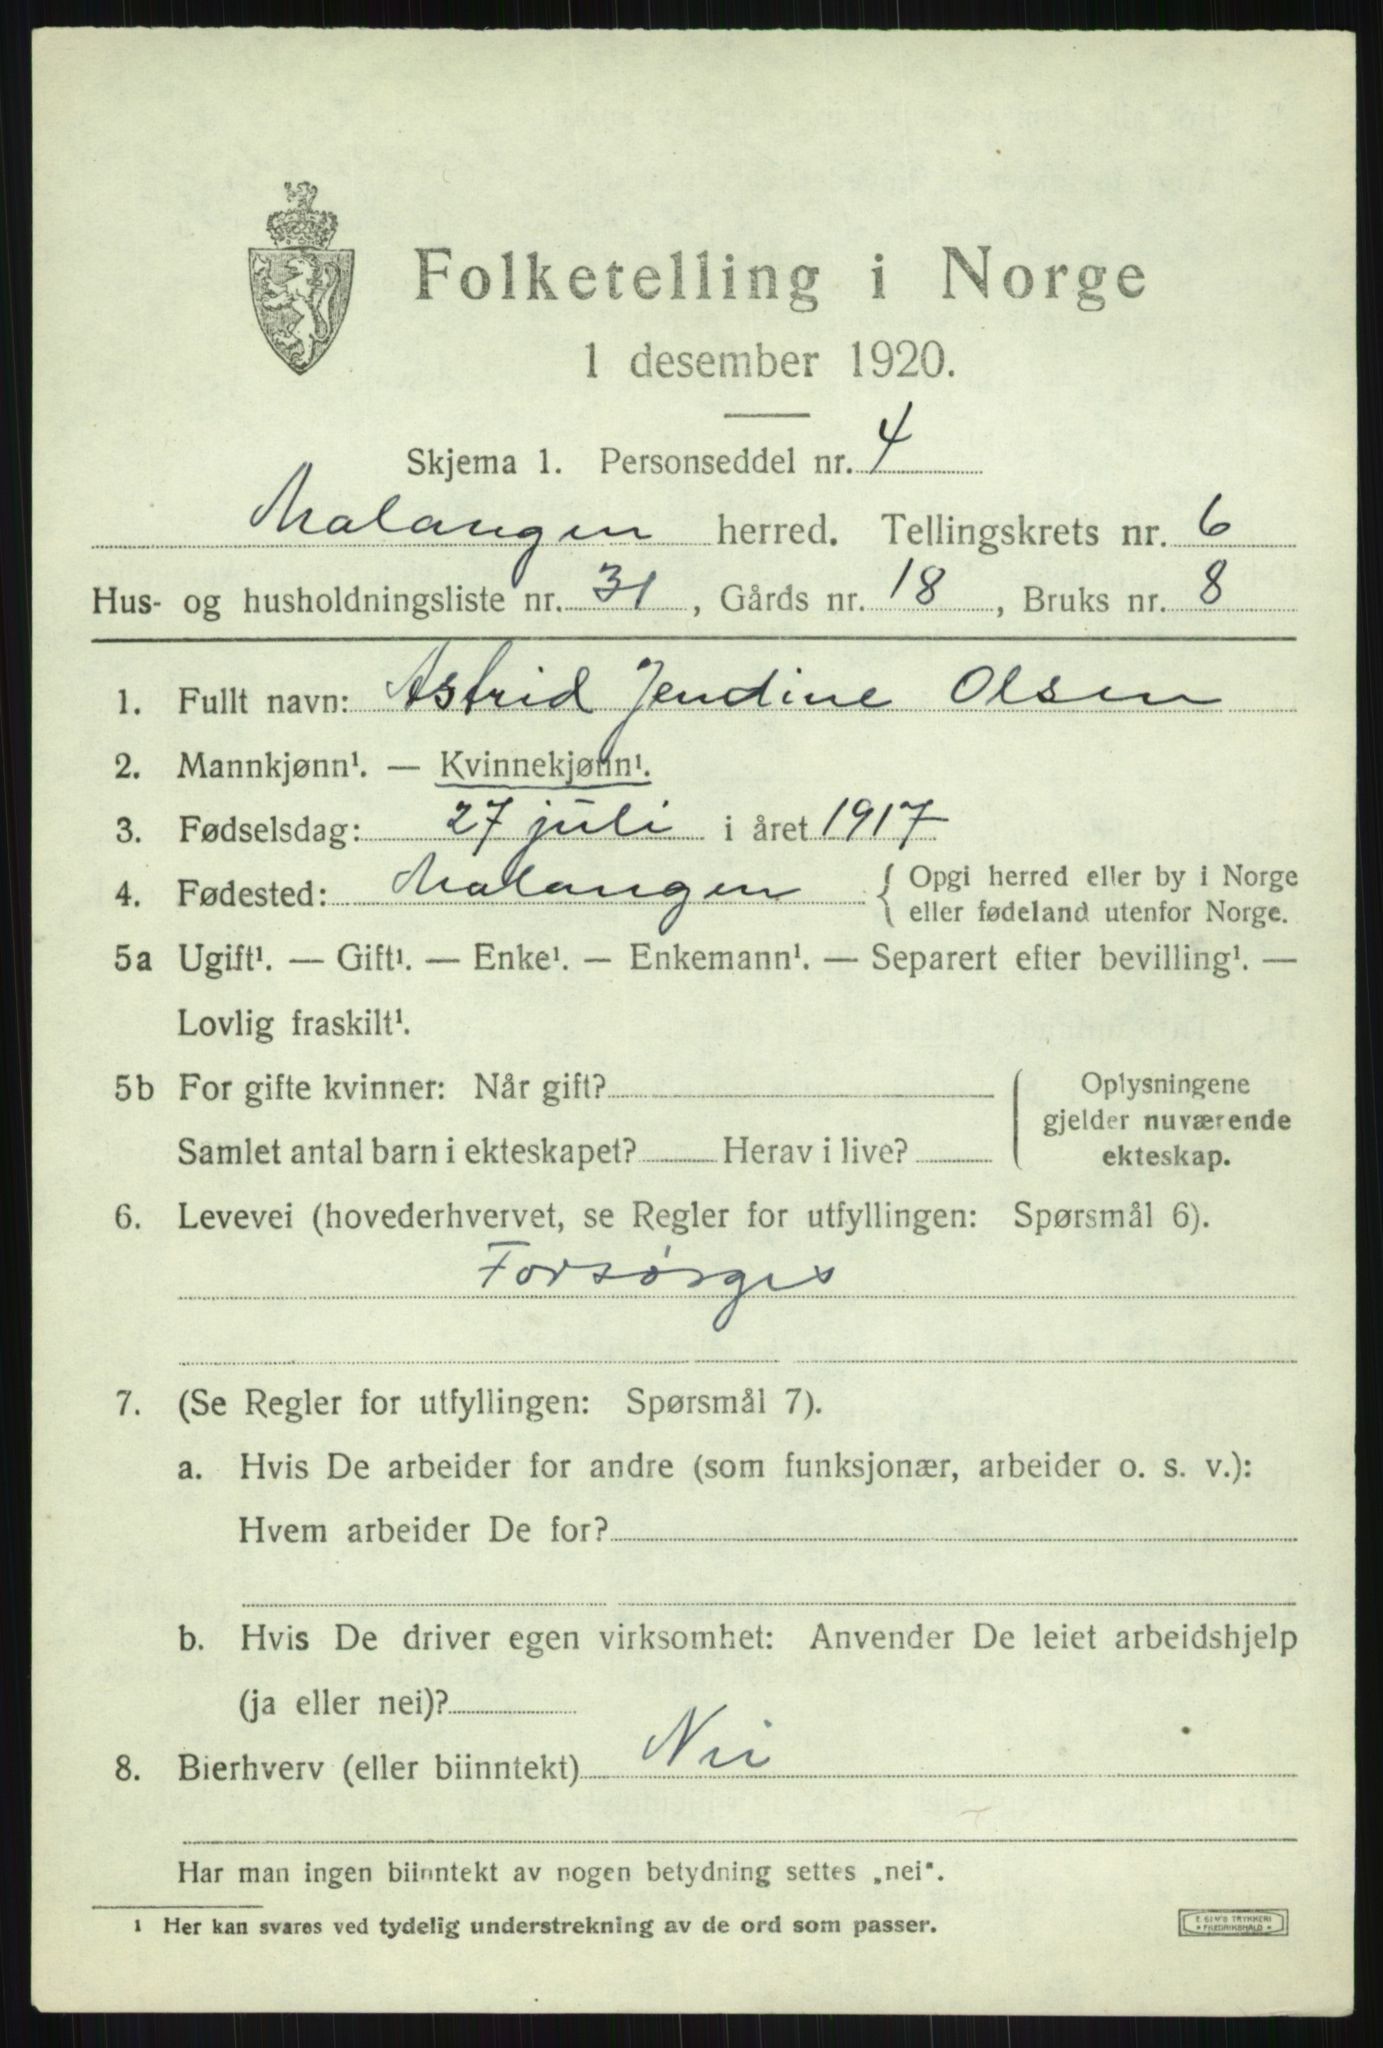 Folketelling i Norge
1 desember 1920.
Skjema 1. Personseddel nr. 4
Malangen herred. Tellingskrets nr. 6
Hus- og husholdningsliste nr. 31, Gårds nr. 18, Bruks nr. 8
1. Fullt navn: Astrid Jendine Olsen
2. Mannkjønn¹. — Kvinnekjønn¹.
3. Fødselsdag: 27 juli i året 1917
4. Fødested: Malangen { Opgi herred eller by i Norge
eller fødeland utenfor Norge.
5a Ugift¹. — Gift¹. — Enke¹. — Enkemann¹. — Separert efter bevilling¹. —
Lovlig fraskilt¹.
5b For gifte kvinner: Når gift?
Samlet antal barn i ekteskapet? Herav i live?
Oplysningene
gjelder nuværende
ekteskap.
6. Levevei (hovederhvervet, se Regler for utfyllingen: Spørsmål 6).
Forsørges
7. (Se Regler for utfyllingen: Spørsmål 7).
a. Hvis De arbeider for andre (som funksjonær, arbeider o. s. v.):
Hvem arbeider De for?
b. Hvis De driver egen virksomhet: Anvender De leiet arbeidshjelp
(ja eller nei)?
8. Bierhverv (eller biinntekt) Nei
Har man ingen biinntekt av nogen betydning settes „nei“.
¹ Her kan svares ved tydelig understrekning av de ord som passer.
E. SEM'S TRYKKERI
* FREDRIKSHALD *